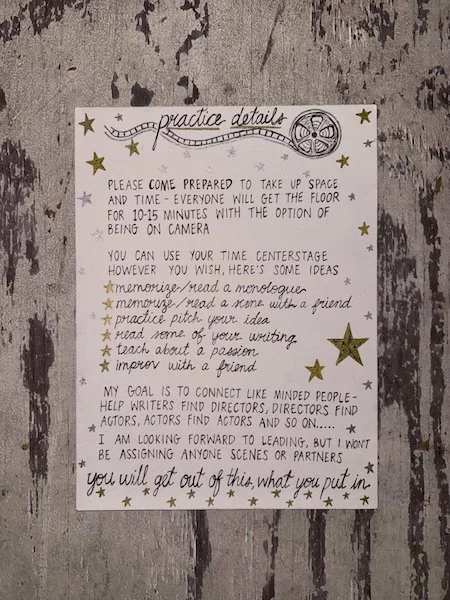 practice details
PLEASE COME PREPARED TO TAKE UP SPACE
AND TIME - EVERYONE WILL GET THE FLOOR
FOR 10-15 MINUTES WITH THE OPTION OF
BEING ON CAMERA
YOU CAN USE YOUR TIME CENTERSTAGE
HOWEVER YOU WISH, HERE'S SOME IDEAS
memorize/read a monologue
memorize/read a scene with a friend
practice pitch your idea
read some of your writing
teach about a passion
improv with a friend
MY GOAL IS TO CONNECT LIKE MINDED PEOPLE-
HELP WRITERS FIND DIRECTORS, DIRECTORS FIND
ACTORS, ACTORS FIND ACTORS AND SO ON.....
I AM LOOKING FORWARD TO LEADING, BUT I WON'T
BE ASSIGNING ANYONE SCENES OR PARTNERS
you will get out of this, what you put in